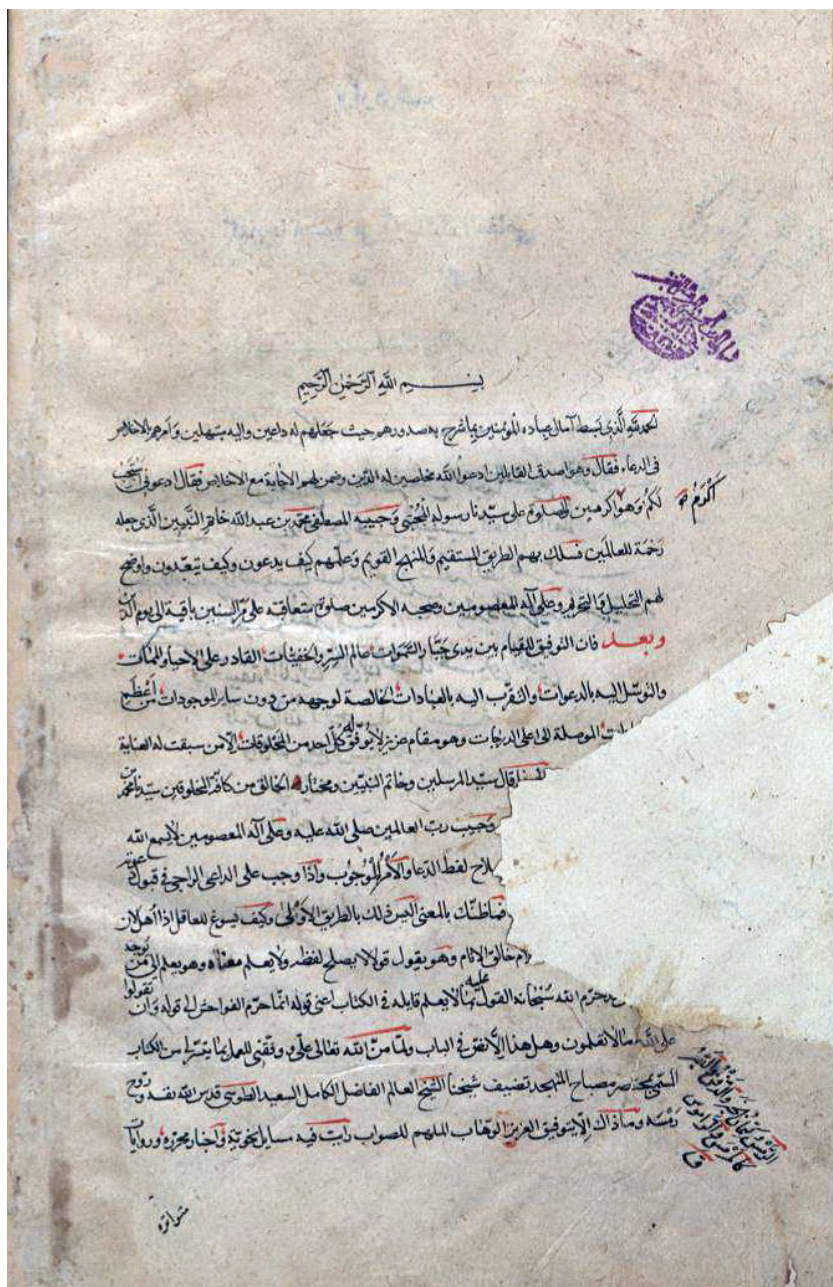 بسم الله الرحمن الرحيم
الحمد لله الذي بسط آمال عباده المؤمنين بما شرح به صدورهم حيث جعلهم له داعين واليه مبتهلين وامرهم بالاخلاص
في الدعاء فقال وهو اصدق القايلين ادعوا الله مخلصين له الدين وضمن لهم الاجابة مع الاخلاص فقال ادعوني استجب
لكم وهو اكرم والصلوة على سيدنا رسوله المجتبى وحبيبه المصطفى محمد بن عبد الله خاتم النبيين الذي جعله
رحمة للعالمين فسلك بهم الطريق المستقيم والمنهج القويم وعلمهم كيف يدعون وكيف يتعبدون واوضح
لهم التحليل والتحريم وعلى آله المعصومين وصحبه الاكرمين صلوة متعاقبة على مر السنين باقية الى يوم الدين
وبعد فان التوفيق للقيام بين يدى جبار السموات عالم السر والخفيات القادر على الاحياء والممات
والتوسل اليه بالدعوات والتقرب اليه بالعبادات الخالصة لوجهه من دون ساير الموجودات من اعظم
الموصلة الى اعلى الدرجات وهو مقام عزيز لا يوفق له كل احد من المخلوقات الا من سبقت له العناية
قال سيد المرسلين وخاتم النبيين ومختار الخالق من كافة المخلوقين سيدنا محمد
وحبيب رب العالمين صلى الله عليه وعلى آله المعصومين لا يسمع الله
لفظ الدعا والامر للوجوب واذا وجب على الداعى الراجى في قبول دعوته
فما ظنك بالمعنى اليس ذلك بالطريق الاولى وكيف يسوغ للعاقل اذا اهل لان
خالق الانام وهو يقول قولا لا يصلح لفظه ولا يعلم معناه وهو يعلم الى من توجه
حرم الله سبحانه القول عليه بما لا يعلم قايله في الكتاب اعنى قوله انما حرم الفواحش الى قوله وان تقولوا
على الله مالا تعلمون وهل هذا الا نقص في الباب ولما من الله تعالى على ووفقني للعمل بما تيسر من الكتاب
المسمى بمختصر مصباح المتهجد تصنيف شيخنا الشيخ العالم الفاضل الكامل السعيد الطوسى قدس الله نفسه وروح
رمسه وما ذاك الا بتوفيق العزيز الوهاب الملهم للصواب رايت فيه مسايل نحوية واخبار محررة وروايات
متواترة